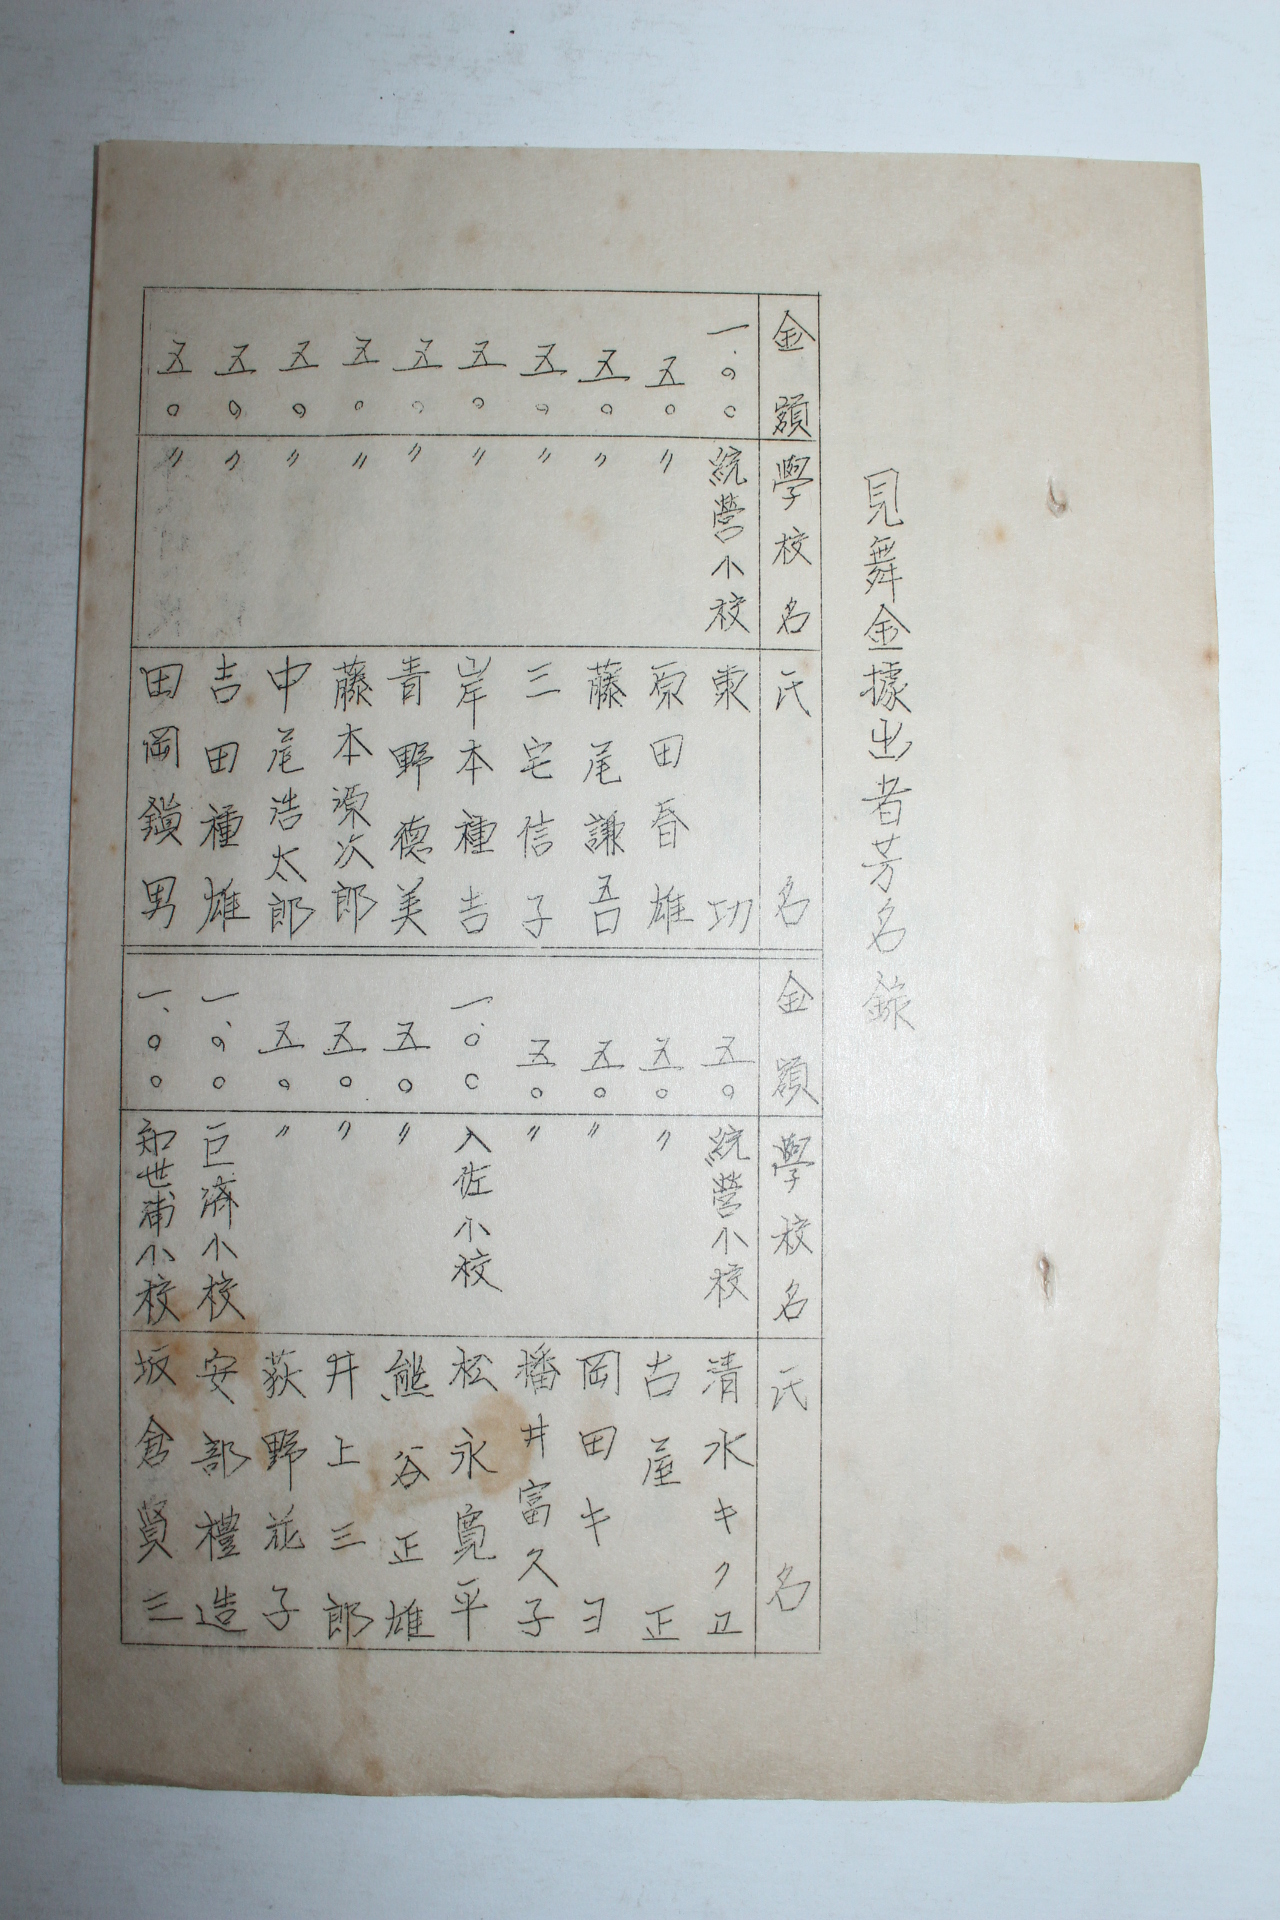 見舞金據出者芳名錄
金額 學校名 氏名
一.〇〇 統營小校 東功
五〇 〃 原田春雄
五〇 〃 藤尾謙吾
五〇 〃 三宅信子
五〇 〃 岸本種吉
五〇 〃 青野德美
五〇 〃 藤本源次郎
五〇 〃 中尾浩太郎
五〇 〃 吉田種雄
五〇 〃 田岡鎭男
金額 學校名 氏名
五〇 統營小校 清水キクヱ
五〇 〃 古屋正
五〇 〃 岡田キヨ
五〇 〃 播井富久子
一.〇〇 入佐小校 松永寬平
五〇 〃 熊谷正雄
五〇 〃 井上三郎
五〇 〃 荻野花子
一.〇〇 巨濟小校 安部禮造
一.〇〇 知世浦小校 坂倉賢三